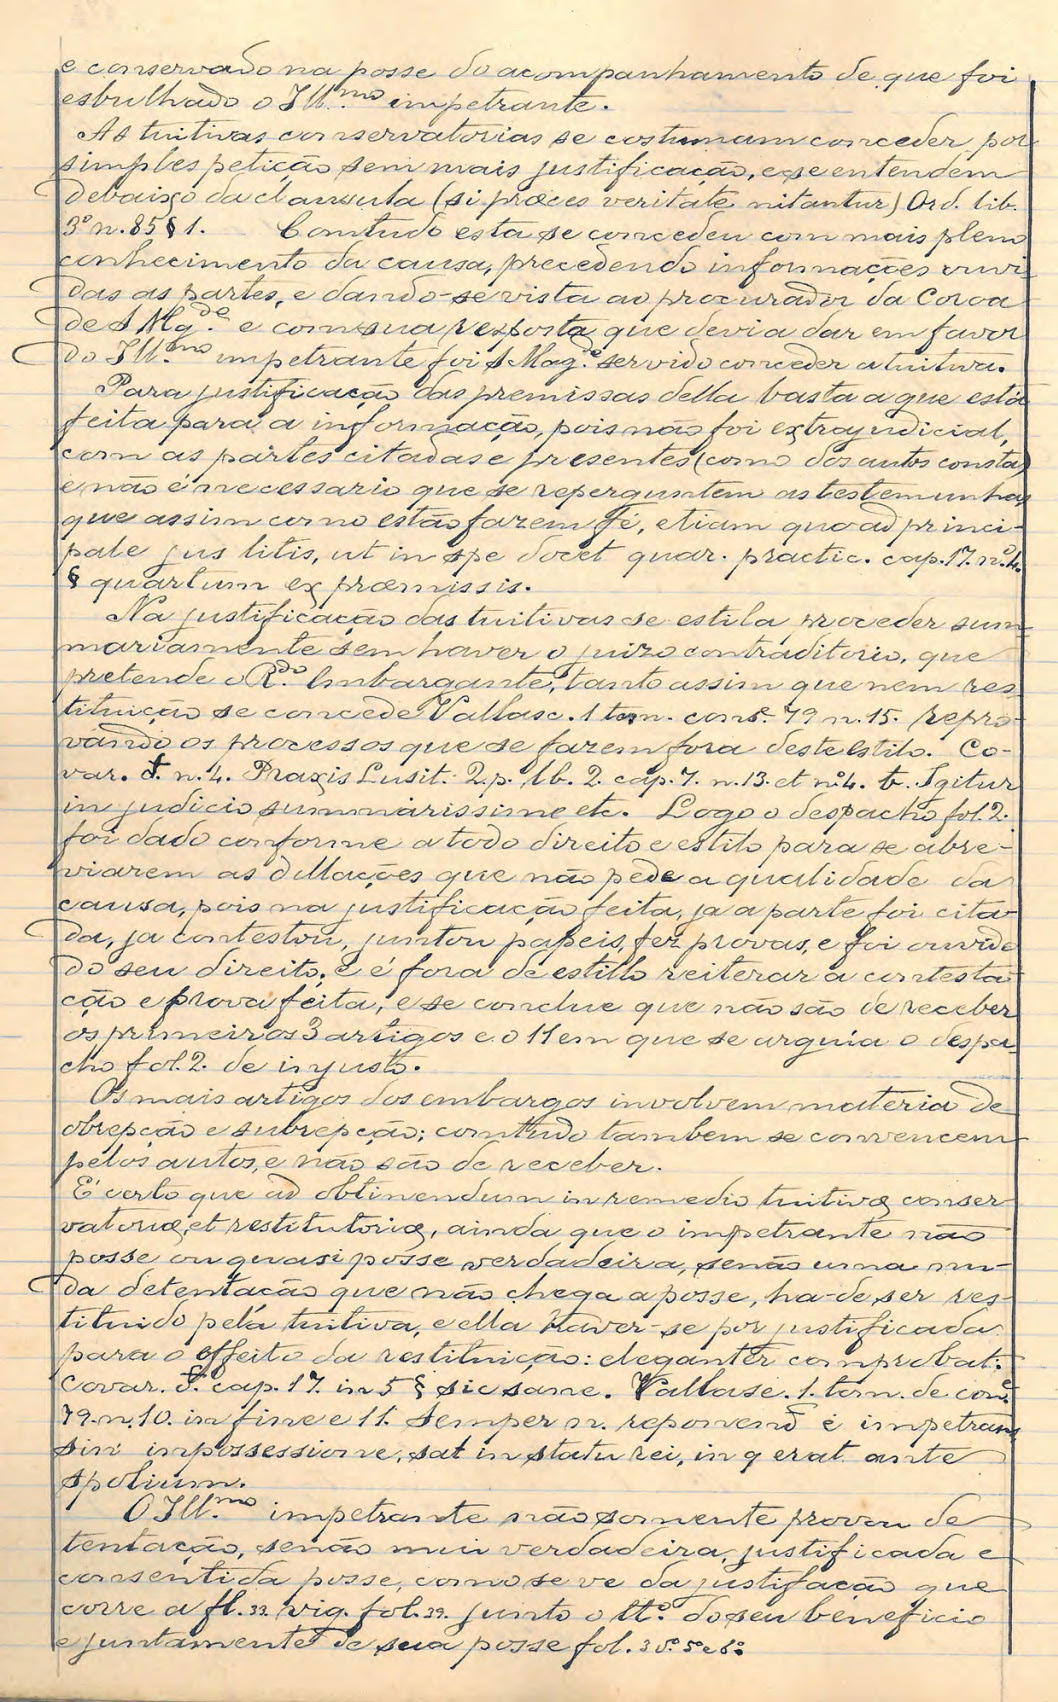 e conservado na posse do acompanhamento de que foi
esbulhado o Ill.mo impetrante.
As tuitivas conservatorias se costumam conceder por
simples petição sem mais justificação, e se entendem
debaixo da clausula (si præces veritate nitantur) Ord. lib.
3º n. 85 § 1. Comtudo esta se concedeu com mais pleno
conhecimento da causa, precedendo informações ouvi
das as partes, e dando-se vista ao procurador da Coroa
de S Mg.de e com sua resposta que devia dar em favor
do Ill.mo impetrante foi S Mag.e servido conceder a tuitiva.
Para justificação das premissas della basta a que está
feita para a informação, pois não foi extrajudicial,
com as partes citadas e presentes (como dos autos consta)
e não é necessario que se reperguntem as testemunhas
que assim como estão fazem fé, etiam quoad princi-
pale jus litis, ut in spe docet quar. practic. cap. 17. nº 4.
§ quartum ex præmissis.
Na justificação das tuitivas se estila proceder sum
mariamente sem haver o juizo contraditorio, que
pretende o R.do Embargante, tanto assim que nem res
tituição se concede Vallasc. 1 tom. cons. 79 n. 15. repro-
vando os processos que se fazem fora deste estilo. Co-
var. d. n. 4. Praxis Lusit. 2. p. lb. 2. cap. 7. n. 13. et nº 4. t. Igitur
in judicio summarissime etc. Logo o despacho fol. 2.
foi dado conforme a todo direito e estilo para se abre-
viarem as dillações que não pede a qualidade da
causa, pois na justificação feita, ja a parte foi cita
da, ja contestou, juntou papeis, fez provas, e foi ouvido
do seu direito, e é fora de estillo reiterar a contesta
ção e prova feita, e se conclue que não são de receber
os primeiros 3 artigos e o 11 em que se arguia o despa
cho fol. 2. de injusto.
Os mais artigos dos embargos involvem materia de
obrepção e subrepção; comtudo tambem se convencem
pelos autos, e não são de receber.
É certo que ad obtinendum in remedio tuitivæ conser
vatoriæ, et restitutoriæ, ainda que o impetrante não
posse ou quasi posse verdadeira, senão uma nu-
da detentação que não chega a posse, ha-de ser res-
tituido pela tuitiva, e ella haver-se por justificada
para o effeito da restituição: eleganter comprobat:
Covar. d. cap. 17. in 5 § sic sane. Vallasc. 1. tom. de cons.
79. n. 10. in fine e 11. semper n. reponend é impetrans
sin impossessione, sat in statu rei, in q erat ante
spolium.
O Ill.mo impetrante não somente provou de
tentação, senão mui verdadeira, justificada e
consentida posse, como se ve da justifação que
corre a fl. 33. vig. fol. 39. junto o tt.º do seu beneficio
e juntamente de sua posse fol. 3